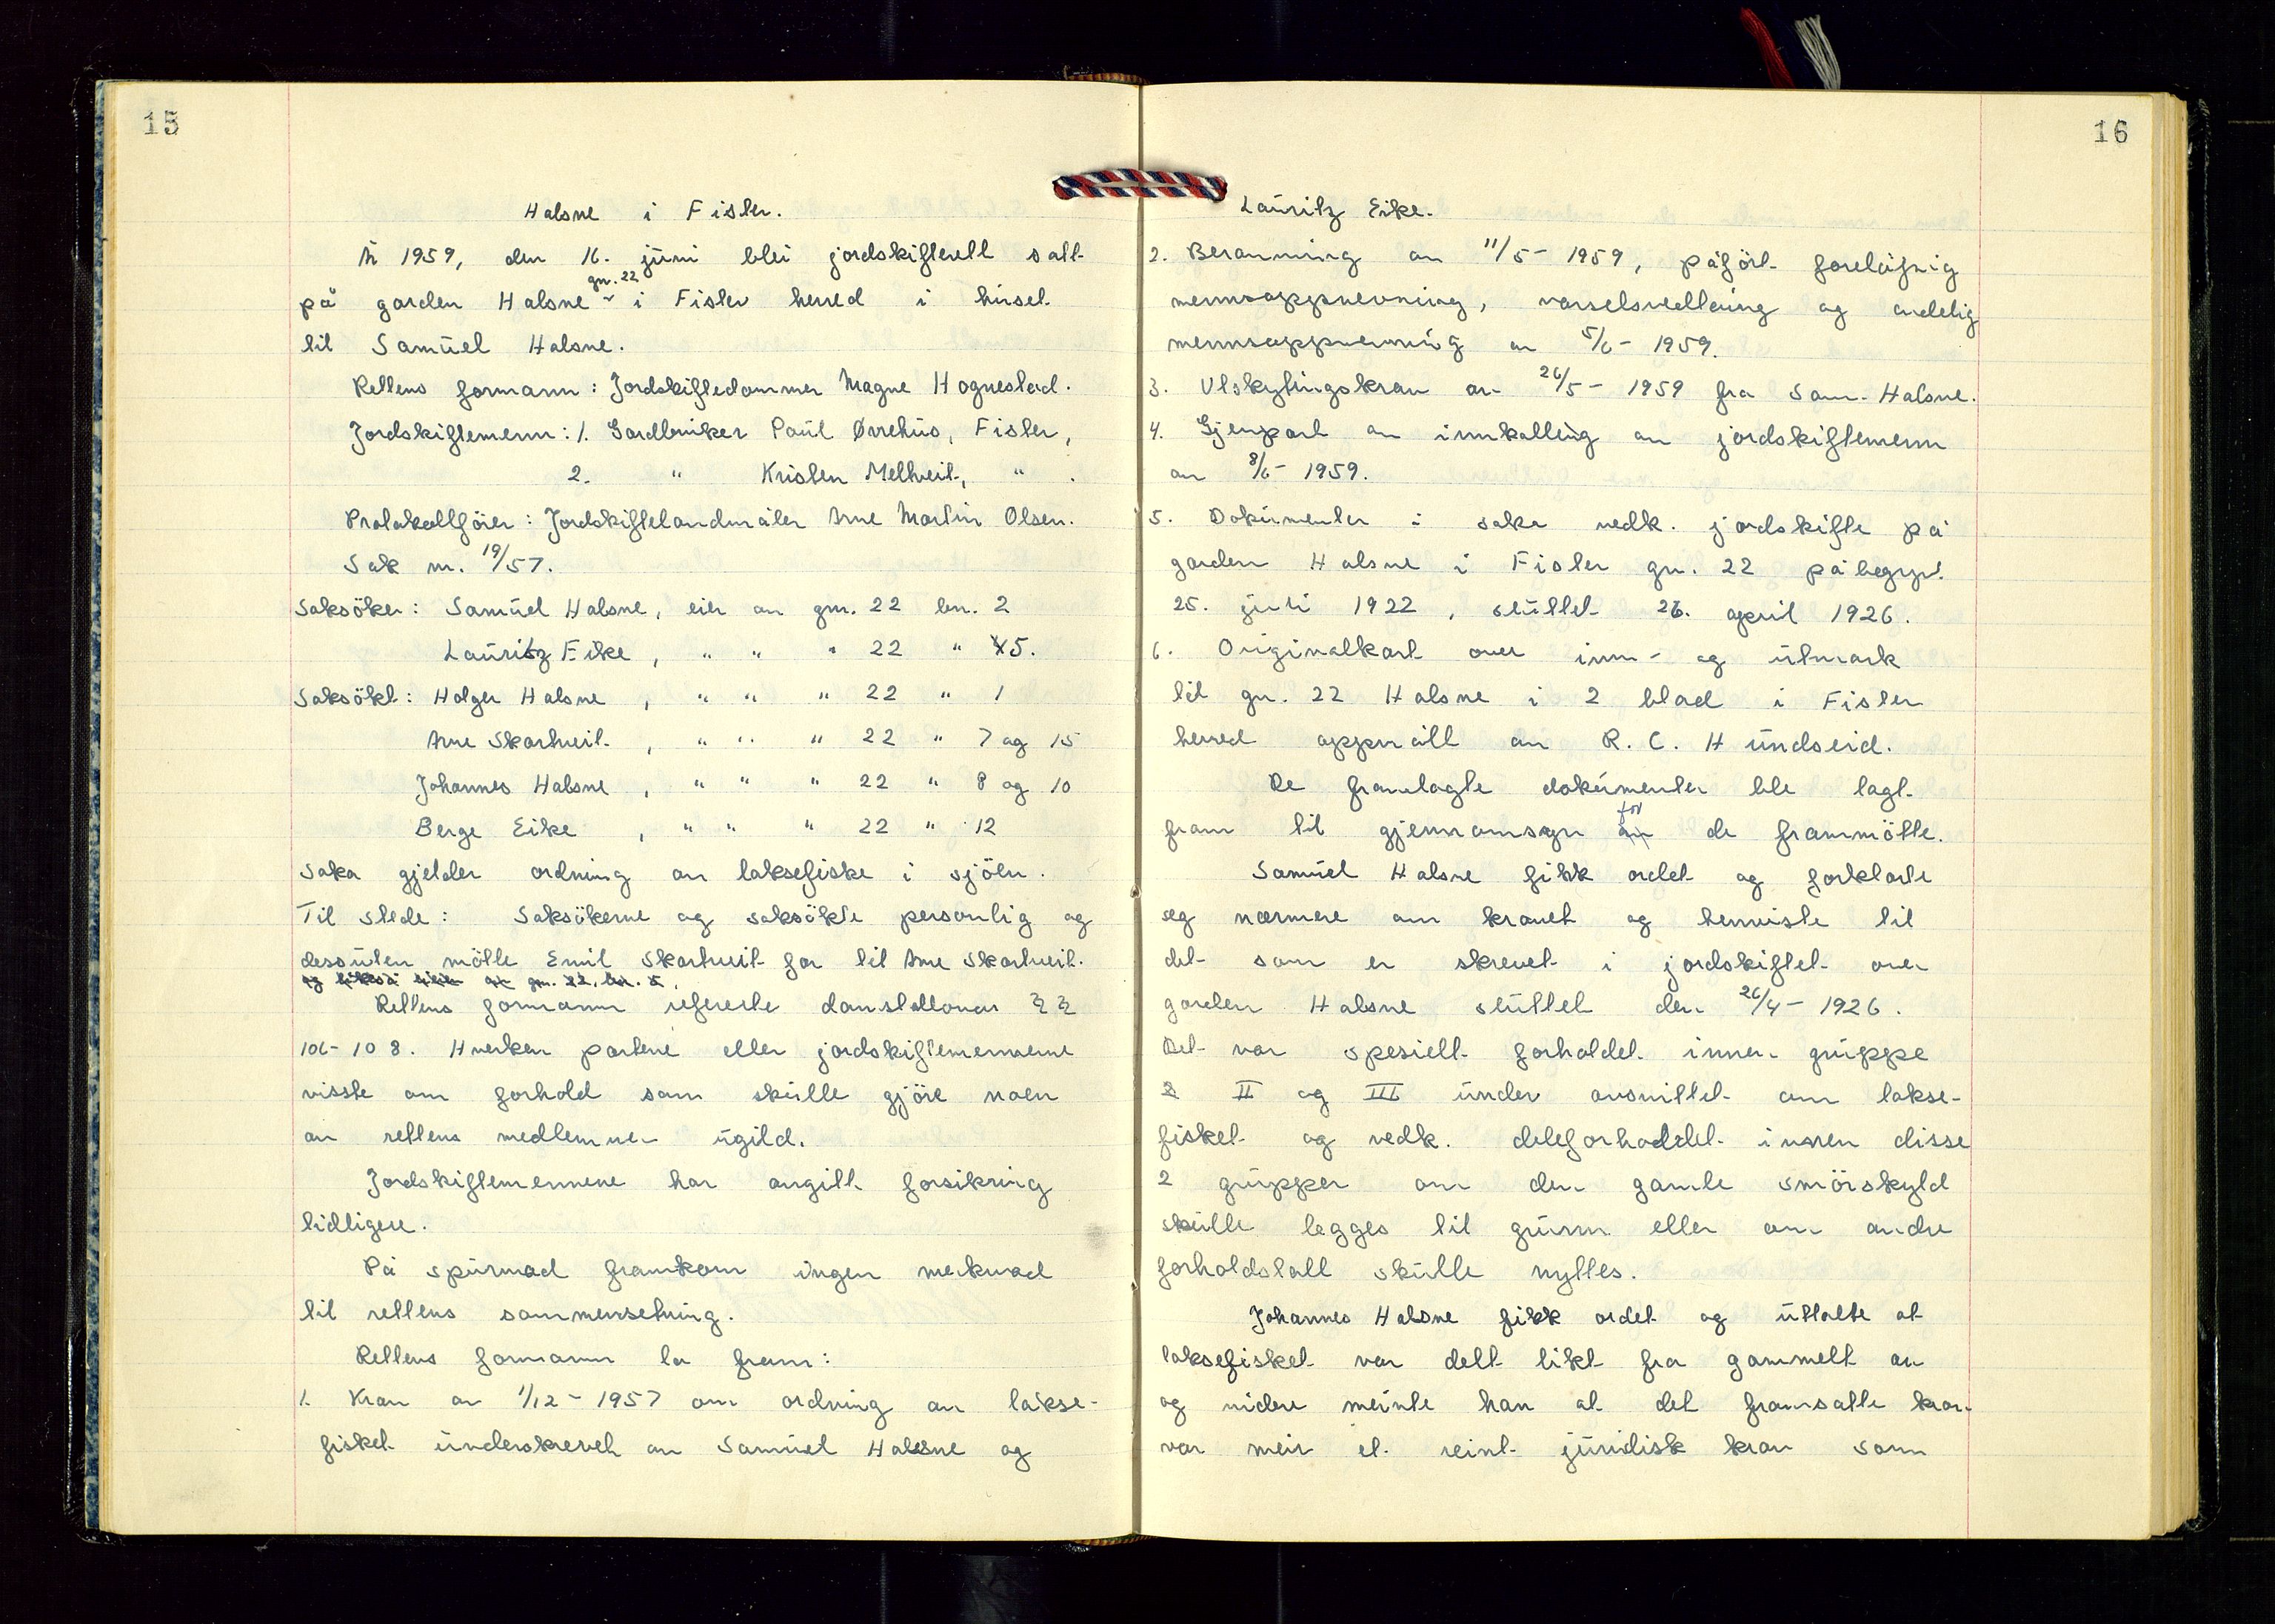 15
Halsne i Fister.
År 1959, den 16. juni blei jordskifterett satt
gnr. 22
på garden Halsne i Fister herred i huset
til Samuel Halsne.
Rettens formann: Jordskiftedommer Magne Hognestad.
Jordskiftemenn: 1. Gardbruker Paul Ørrehus, Fister,
2. " Kristen Melhveit, " .
Protokollförer: Jordskiftelandmåler Arne Martin Olsen.
Sak nr. 19/57.
Saksöker: Samuel Halsne, eier av gnr. 22 bnr. 2
Lauritz Eike, " " " 22 " 5.
Saksökt: Holger Halsne, " " " 22 " 1
Arne Skartveit, " " " 22 " 7 og 15
Johannes Halsne, " " " 22 " 8 og 10
Berge Eike, " " " 22 " 12
Saka gjelder ordning av laksefiske i sjöen.
Til stede: Saksökerne og saksökte personlig og
dessuten mötte Emil Skartveit for til Arne Skartveit.
og likeså eier av gnr. 22, bnr. 5,
Rettens formann refererte domstollovas §§
106-108. Hverken partene eller jordskiftemennene
visste om forhold som skulle gjöre noen
av rettens medlemmer ugild.
Jordskiftemennene har avgitt forsikring
tidligere.
På spurnad framkom ingen merknad
til rettens sammensetning.
Rettens formann la fram:
1. Krav av 1/12 - 1957 om ordning av lakse-
fisket underskrevet av Samuel Halsne og
16
Lauritz Eike.
2. Beramming av 11/5 - 1959, påfört foreløpig
mennsoppnevning, varselsvedtaing og endelig
mennsoppnevning av 5/6 - 1959.
3. Utskyfingskrav av 26/5 - 1959 fra Sam. Halsne.
4. Gjenpart av innkalling av jordskiftemenn
av 8/6 - 1959.
5. Dokumenter i saka vedk. jordskifte på
garden Halsne i Fister gnr. 22 påbegynt
25. juli 1922, sluttet 26. april 1926.
6. Originalkart over inn- og utmark
til gnr. 22 Halsne i 2 blad i Fister
herred oppmålt av R. C. Hundseid.
De framlagte dokumenter ble lagt
fram til gjennomsyn for de frammötte.
Samuel Halsne fikk ordet og forklarte
seg nærmere om kravet og henviste til
det som er skrevet i jordskiftet over
garden Halsne sluttet den 26/4 - 1926.
Det var spesielt forholdet innen gruppe
II og III under avsnittet om lakse-
fisket og vedk. deleforholdet innen disse
2 grupper om den gamle smörskyld
skulle legges til grunn eller om andre
forholdstall skulle nyttes.
Johannes Halsne fikk ordet og uttalte at
laksefisket var delt likt fra gammelt av
og videre meinte han at det framsatte krav
var meir et reint juridisk krav som